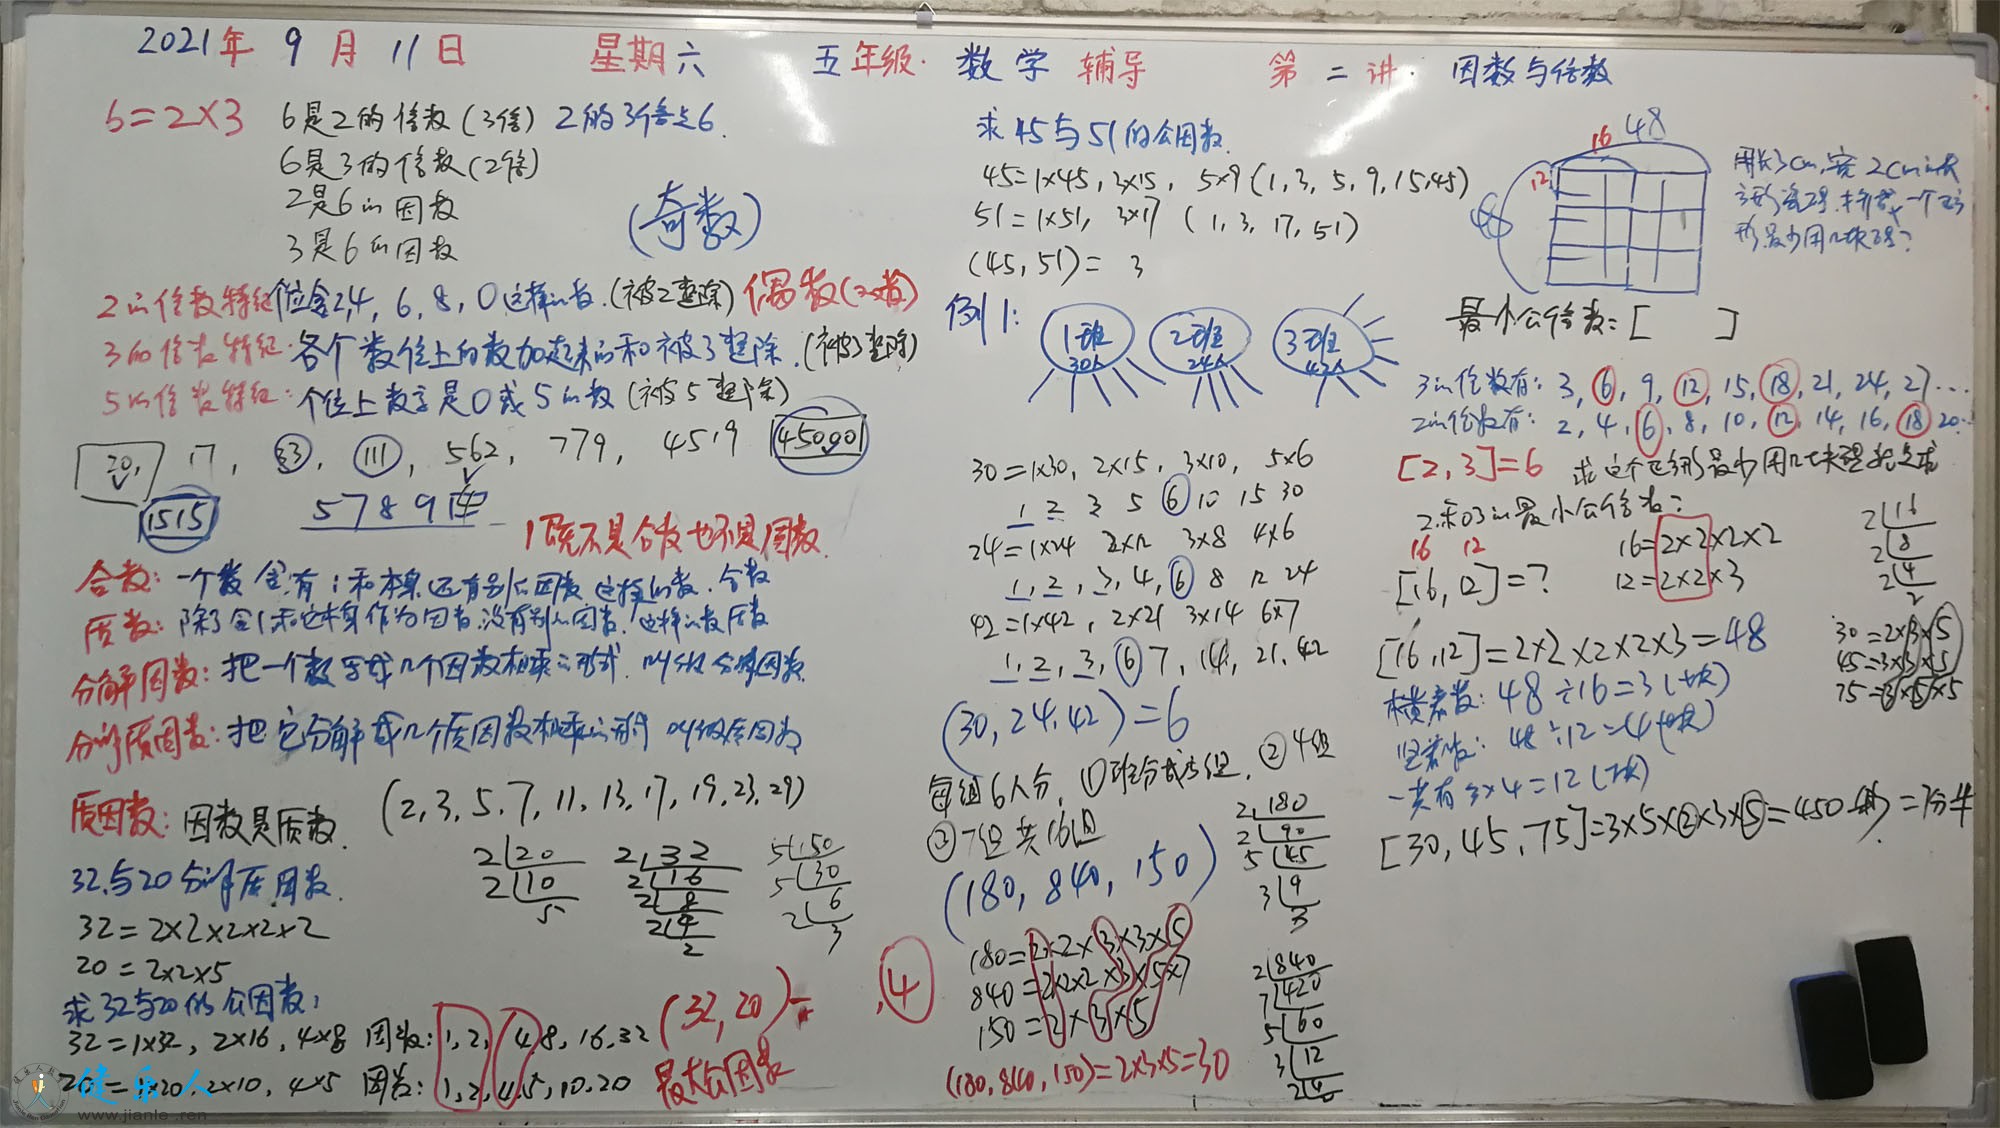 2021年 9月 11日 星期六 五年级·数学 辅导 第二讲· 因数与倍数
6=2×3 6是2的倍数(3倍) 2的3倍是6.
6是3的倍数(2倍)
2是6的因数
3是6的因数
(奇数)
2的倍数特征 个位含2,4,6,8,0这样的数.(被2整除) 偶数(双数)
3的倍数特征·各个数位上的数加起来的和被3整除.(被3整除)
5的倍数特征·个位上数字是0或5的数(被5整除)
20, 17, 33, 111, 562, 779, 4519 45090
1515 5789
1既不是合数也不是质数.
合数: 一个数含有1和本身还有别的因数 这样的数.合数
质数: 除了含1和它本身作为因数没有别的因数.这样的数质数
分解因数: 把一个数写成几个因数相乘的形式.叫做分解因数.
分解质因数: 把它分解成几个质因数相乘的形式 叫做质因数
质因数: 因数是质数. (2,3,5,7,11,13,17,19,23,29)
32与20分解质因数.
32=2×2×2×2×2
20=2×2×5
2 20
2 10
5
2 32
2 16
2 8
2 4
2
5 150
5 30
2 6
3
求32与20的公因数:
32=1×32, 2×16, 4×8 因数:1,2, 4,8,16,32
20=1×20,2×10,4×5 因数:1,2,4,5,10,20
(32,20)= ,4
最大公因数
健乐人
www.jianle.ren
求45与51的公因数.
45=1×45,3×15, 5×9(1,3,5,9,15,45)
51=1×51, 3×17 (1,3,17,51)
(45,51)= 3
例1:
1班 30人
2班 24人
3班 42人
30=1×30, 2×15, 3×10, 5×6
1 2 3 5 6 10 15 30
24=1×24 2×12 3×8 4×6
1,2,3,4,6 8 12 24
42=1×42, 2×21 3×14 6×7
1,2,3,6 7,14,21,42
(30,24,42)=6
每组6人分,①班分成5组,②4组
③7组共16组
(180,840,150)
180=2×2×3×3×5
840=2×2×2×3×5×7
150=2×3×5
(180,840,150)=2×3×5=30
2 180
2 90
5 45
3 9
3
2 840
7 420
5 60
3 12
2 4
48
16
12
48
用长3cm,宽2cm的长
方形瓷砖,拼成一个正方
形最少用几块砖?
最小公倍数:[ ]
3的倍数有: 3,6,9,12,15,18,21,24,27…
2的倍数有: 2,4,6,8,10,12,14,16,18 20…
[2,3]=6 求这个正方形最少用几块砖就是求
2和3的最小公倍数?
16 12
[16,12]=?
16=2×2×2×2
12=2×2×3
2 16
2 8
2 4
2
[16,12]=2×2×2×2×3=48
横着数: 48÷16=3(块)
竖着数: 48÷12=4(块)
一共有3×4=12(块)
30=2×3×5
45=3×3×5
75=3×5×5
[30,45,75]=3×5×2×3×5=450秒=7分半